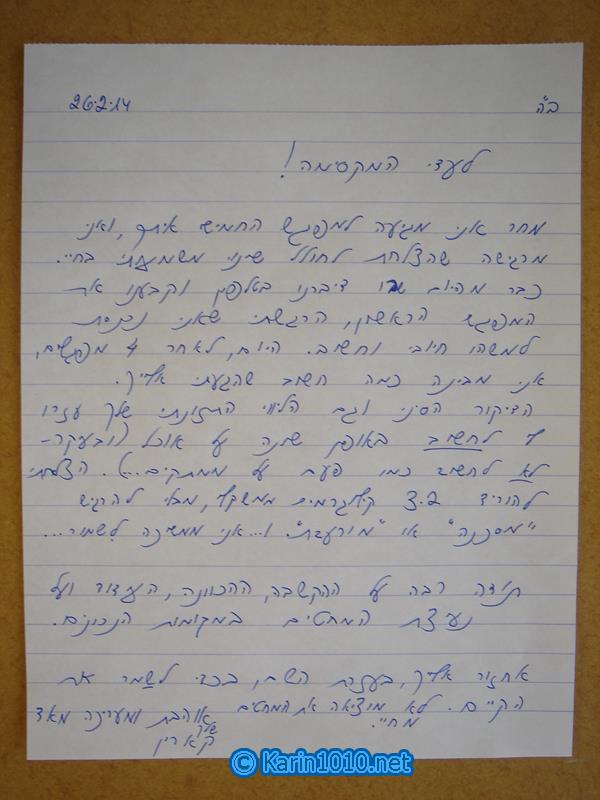 ב"ה 26.2.14
לעדי המקסימה!
מחר אני מגיעה למפגש החמישי איתך, ואני
מרגישה שהצלחת לחולל שינוי משמעותי בחיי.
כבר מהיום שבו דיברנו בטלפון וקבענו את
המפגש הראשון, הרגשתי שאני נכנסת
למשהו חיובי וחשוב. היום, לאחר 4 מפגשים,
אני מבינה כמה חשוב שהגעתי אלייך.
הדיקור הסיני וגם הליווי התזונתי שלך עזרו
לי לחשוב באופן שונה על אוכל (ובעיקר-
לא לחשוב כמו פעם על ממתקים...). הצלחתי
להוריד 3.2 קילוגרמים ממשקלי, מבלי להרגיש
"מסכנה" או "מורעבת". ו...אני ממשיכה לשמור...
תודה רבה על ההקשבה, ההכוונה, העידוד ועל
נעיצת המחטים במקומות הנכונים.
אחזור אלייך, בעזרת השם, בכדי לשמר את
הקיים. לא מוציאה את המחטים
מחיי.
אוהבת ומעריכה מאד
שלך
קארין
© Karin1010.net